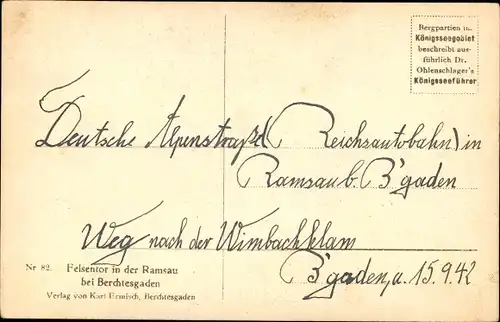 Bergpartien im
Königsseegebiet
beschreibt aus-
führlich Dr.
Ohlenschlager's
Königsseeführer
Deutsche Alpenstraße (Reichsautobahn) in
Ramsau b. B'gaden
Weg nach der Wimbachklam
B'gaden, a. 15.9.42
Nr 82. Felsentor in der Ramsau
bei Berchtesgaden
Verlag von Karl Ermisch, Berchtesgaden